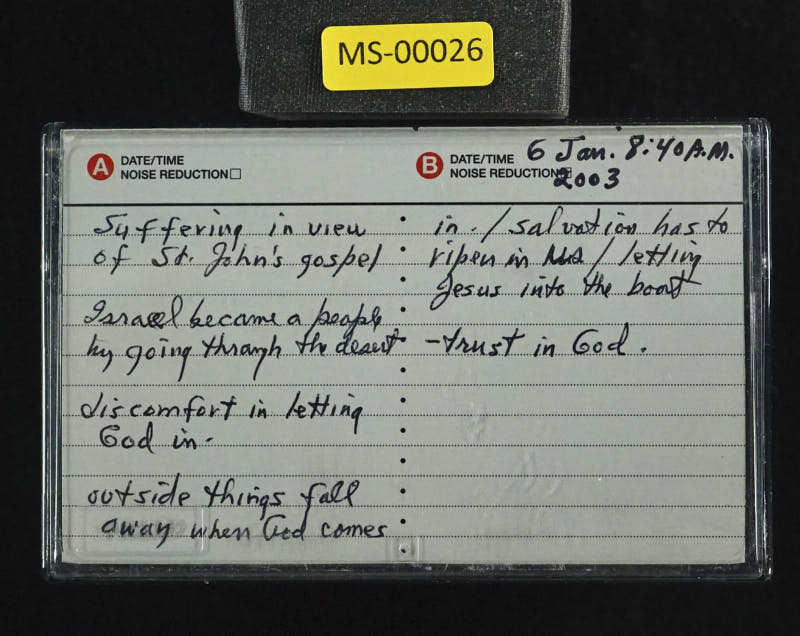 MS-00026
A DATE/TIME
NOISE REDUCTION
Suffering in view
of St. John's gospel
Israel became a people
by going through the desert
discomfort in letting
God in.
outside things fall
away when God comes
B DATE/TIME 6 Jan. 8:40 A.M.
NOISE REDUCTION 2003
in. / salvation has to
ripen in us / letting
Jesus into the boat
- trust in God.